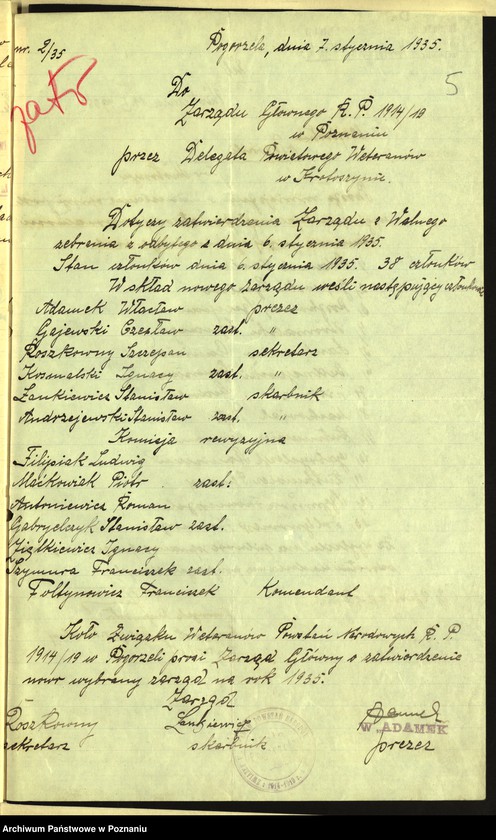 nr. 2/35
Pogorzela, dnia 7. stycznia 1935.
5
Do
Zarządu Głównego R.P. 1914/19
w Poznaniu
przez Delegata Powiatowego Weteranów
w Krotoszynie.
Dotyczy zatwierdzenia Zarządu z Walnego
zebrania z odbytego z dnia 6. stycznia 1935.
Stan członków dnia 6. stycznia 1935. 38 członków
W skład nowego zarządu weśli następujący członkowie
Adamek Wacław prezez
Gajewski Czesław zast. "
Roszkowny Szczepan sekretarz
Kosmalski Ignacy zast. "
Lankiewicz Stanisław skarbnik
Andrzejewski Stanisław zast. "
Komisja rewyzyjna
Filipiak Ludwig
Maćkowiak Piotr zast:
Antoniewicz Roman
Gabryelczyk Stanisław zast.
Ziętkiewicz Ignacy
Szymura Franciszek zast.
Foltynowicz Franciszek Komendant
Koło Związku Weteranów Powstań Narodowych R.P.
1914/19 w Pogorzeli prosi Zarząd Główny o zatwierdzenie
nowo wybrany zarząd na rok 1935.
Zarząd
Roszkowny Lankiewicz
W. ADAMEK
sekretarz skarbnik prezez
Archiwum Państwowe w Poznaniu